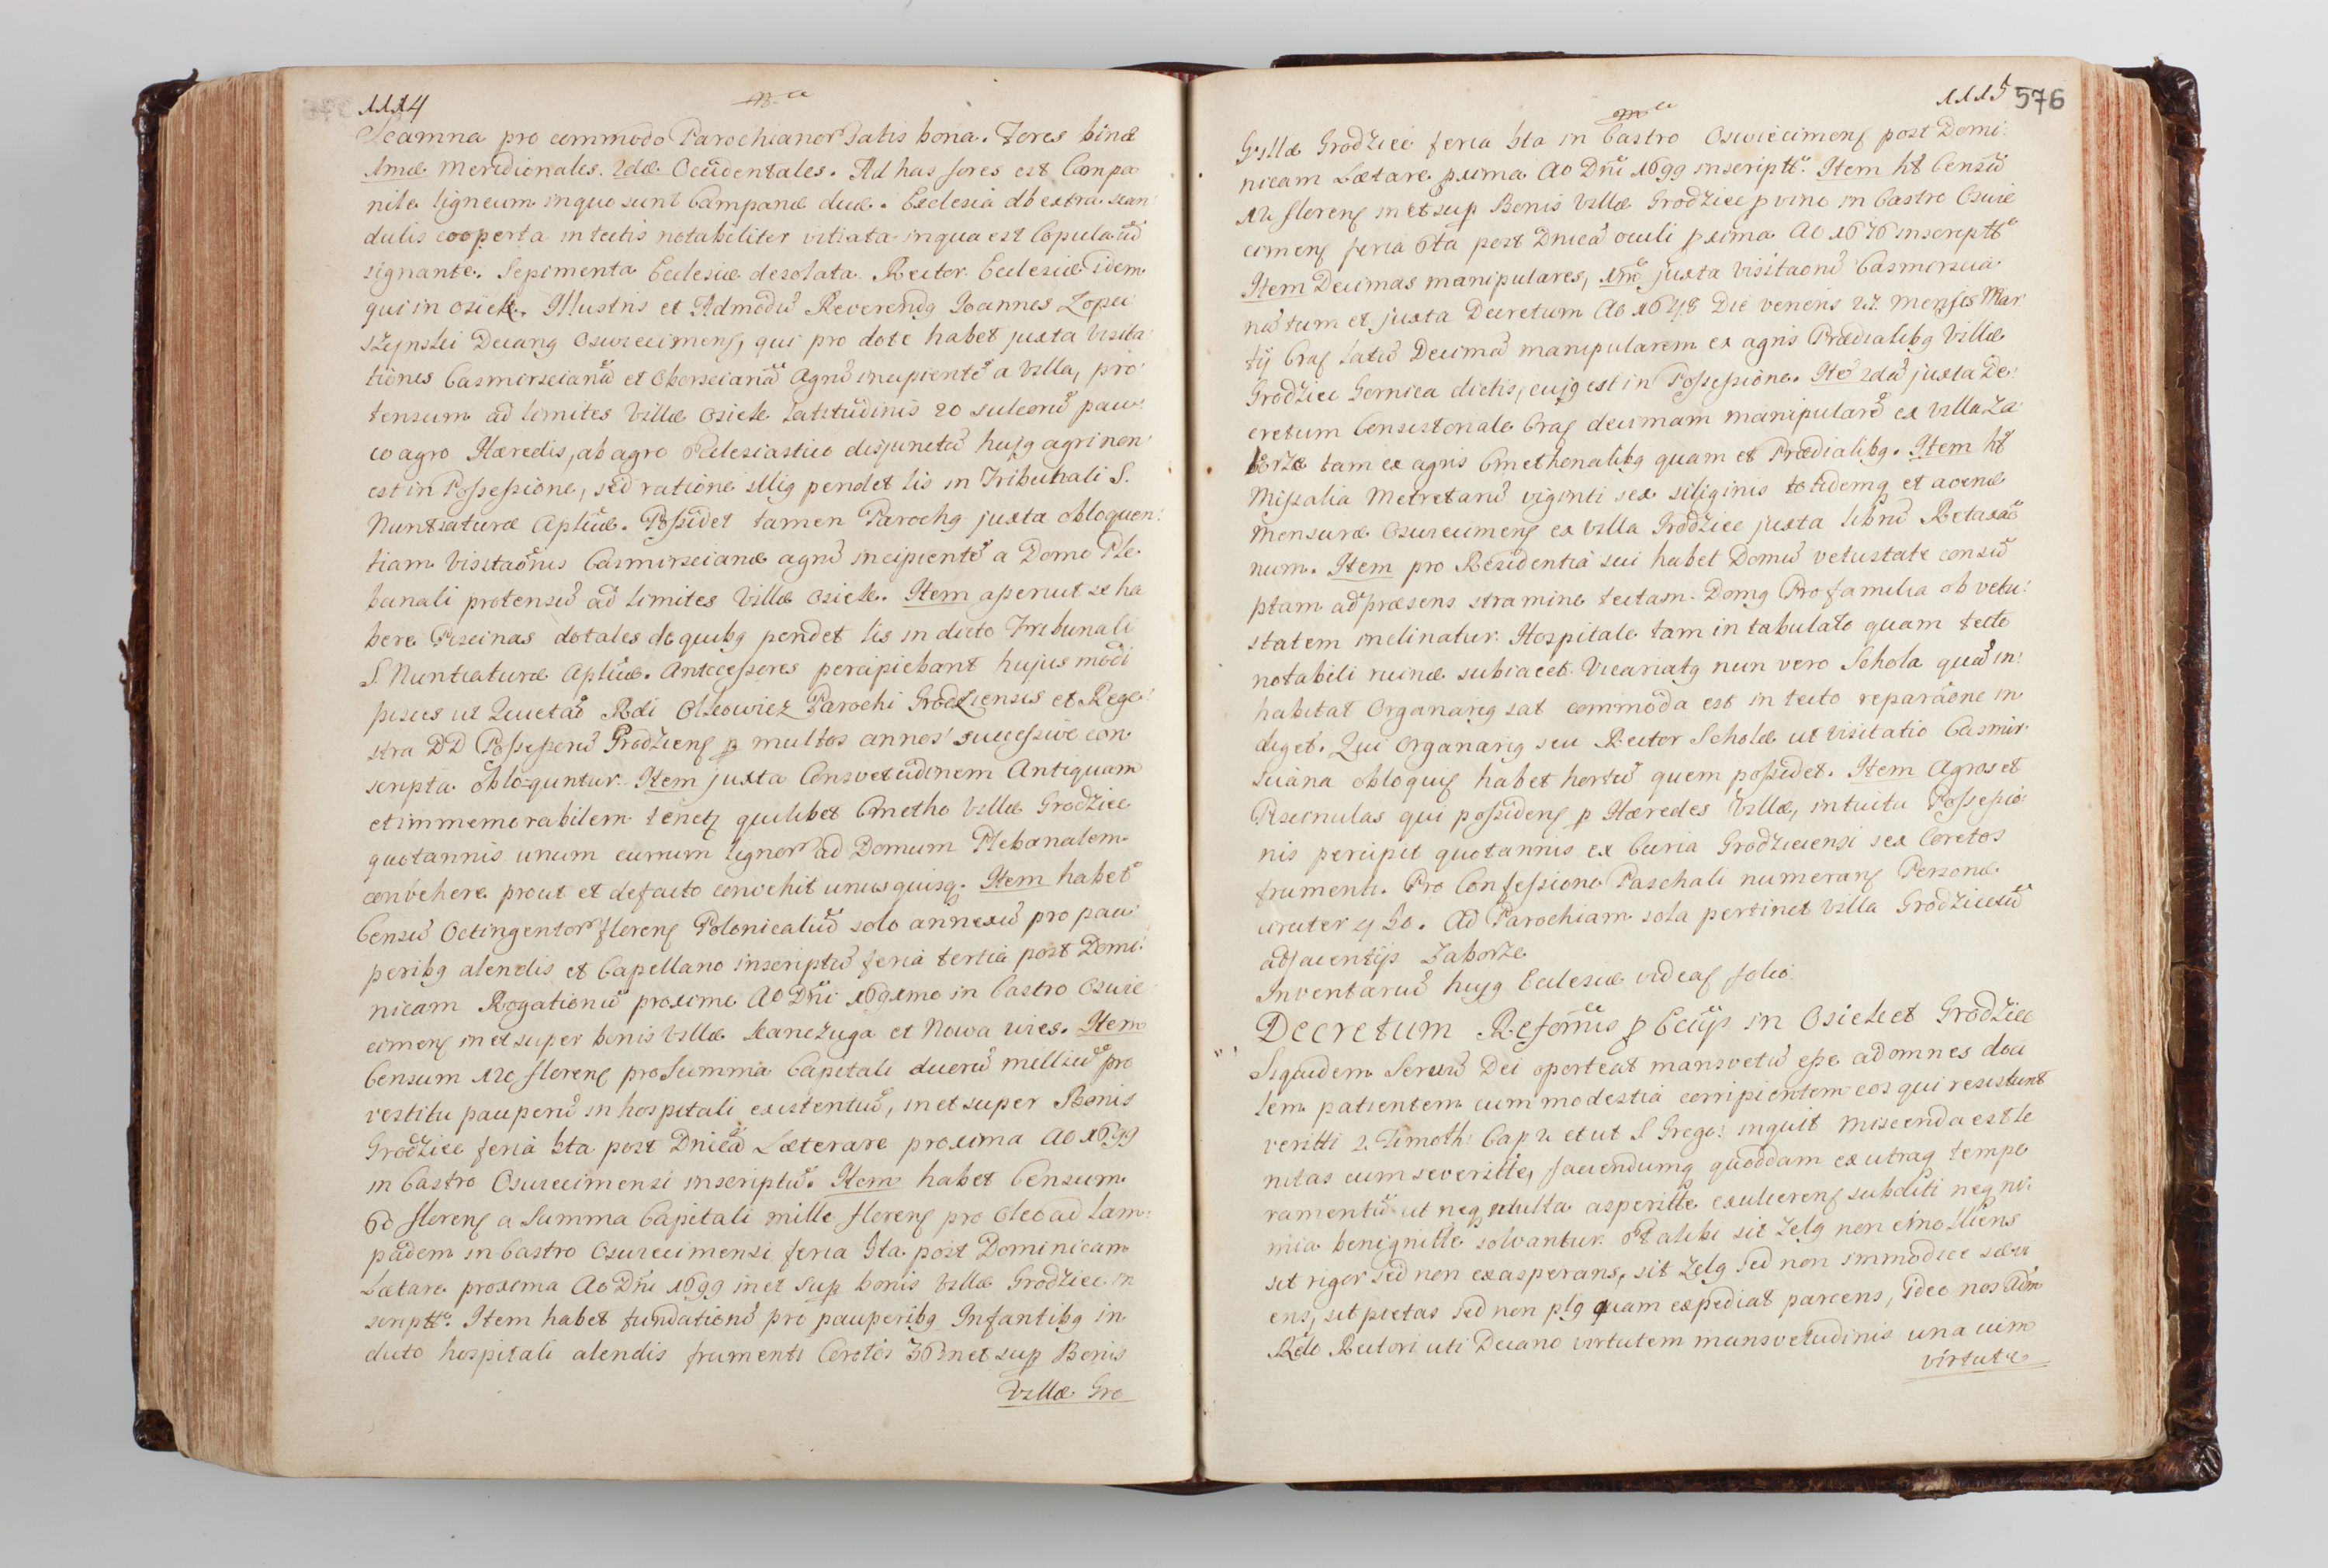 1114
Scamna pro commodo Parochianor satis bona. Fores binæ
1mæ Meridionales. 2dæ Occidentales. Ad has fores est Campa
nile ligneum in quo sunt Campanæ duæ. Ecclesia ab extra scan
dulis cooperta in tectis notabiliter vitiata in qua est Copula
signante. Sepimenta Ecclesiæ desolata. Rector Ecclesiæ idem
qui in Osiek. Illustris et Admodũ Reverendq Joannes Łopu
szynski Decanq Osviecimens, qui pro dote habet juxta Visita:
tiones Casmirscianã et Oborscianã Agrũ incipientẽ a Villa, pro:
tensum ad limites Villæ Osiek latitudinis 20 sulcorũ pau:
co agro Hæredis, ab agro Ecclesiastico disjunctũ hujq agri non
est in Possessione, sed ratione illiq pendet lis in Tribunali S.
Nuntiaturæ Aplicæ. Possidet tamen Parochq juxta obloquen:
tiam Visitaõnis Casmirscianæ agrũ incipientẽ a Domo Ple
banali protensũ ad limites Villæ Osiek. Item asseruit se ha
bere Piscinas dotales de quibq pendet lis in dicto Tribunali
S. Nuntiaturæ Aplicæ. Antecessores percipiebant hujusmodi
pisces ut Quietaõ Rdi Olscowicz Parochi Grodziensis et Rege:
stra DD Possessorũ Grodziens p multos annos successive con
scripta obloquntur. Item juxta Consvetudinem Antiquam
et immemorabilem tenetz quilibet Cmetho Villæ Grodziec
quotannis unum currum lignor ad Domum Plebanalem
convehere prout et de facto convehit unusquisq. Item habet
Censũ Octingentor florens Polonicaliũ solo annexũ pro pau:
peribq alendis et Capellano inscriptũ feria tertia post Domi:
nicam Rogationũ proxime Ao Dni 1691mo in Castro Osvie
cimens in et super bonis Villæ Kanczuga et Nowa wies. Item
Censum 120 florens pro Summa Capitali duorũ milliũ pro
vestitu pauperũ in hospitali existentiũ, in et super Bonis
Grodziec feria 5ta post Dnicã Læterare proxima Ao 1699
in Castro Osvieciмensi inscriptũ. Item habet Censum
60 florens a Summa Capitali mille florens pro Oleo ad Lam:
padem in Castro Osvieciмensi feria 5ta post Dominicam
Lætare proxima Ao Dni 1699 in et sup bonis Villæ Grodziec in
scriptt. Item habet fundationẽ pro pauperibq Infantibq in
dicto hospitali alendis frumenti Coretos 36 in et sup Bonis
Villæ Gro
1115 576
Villæ Grodziec feria 5ta in Castro Osvieciмens post Domi:
nicam Lætare pxima Ao Dni 1699 inscriptt. Item ht Censũ
12 florens in et sup Bonis Villæ Grodziec p vino in Castro Osvie
cimens feria 6ta post Dnicã oculi pxima Ao 1676 inscriptt
Item Decimas manipulares, 1mo juxta Visitaonũ Casmirscia
nũ tum et juxta Decretum Ao 1648 Die veneris 27 mensis Mar
tij Crac latũ Decimã manipularem ex agris Prædialibq Villæ
Grodziec Gornica dictis, cujq est in Possessione. Itẽ 2dũ juxta De:
cretum Consistoriale Crac decimam manipularẽ ex Villa Za
borze tam ex agris Cmethonalibq quam et Prædialibq. Item ht
Missalia Metretarũ viginti sex siliginis totidemq et avenæ
mensuræ Osvieciмens ex Villa Grodziec juxta librũ Retaxaõ
num. Item pro Residentia sui habet Domũ vetustate consũ
ptam ad præsens stramine tectam. Domq Pro familia ob vetu:
statem inclinatur. Hospitale tam in tabulato quam tecto
notabili ruinæ subiacet. Vicariatq nun vero Schola quã in:
habitat Organariq sat commoda est in tecto reparaõne in
diget. Qui Organariq seu Rector Scholæ ut visitatio Casmir:
sciana obloquis habet hortũ quem possidet. Item Agros et
Piscinulas qui possidens p Hæredes Villæ, intuitu Possessio:
nis percipit quotannis ex Curia Grodziecensi sex Coretos
frumenti. Pro Confessione Paschali numerans Personæ
circiter 450. Ad Parochiam sola pertinet Villa Grodziec cũ
adjacentijs Zaborze
Inventariũ hujq Ecclesiæ videas folio
Decretum Reformis p Ecclijs in Osiek et Grodziec
Siquidem Servũ Dei oporteat mansvetũ esse ad omnes doci
lem patientem cum modestia corripientem eos qui resistunt
veritti 2. Timoth: Cap 2 et ut S Grego: inquit Miscenda est le
nitas cum severitte, faciendumq quoddam ex utraq tempe
ramentũ ut neq multa asperitte exulcerens subditi neq ni:
mia benignitte solvantur. Et alibi sit Zelq non emolliens
sit rigor sed non exasperans, sit Zelq sed non immodice sævi
ens, sit pietas sed non plq quam expediat parcens, ideo nos Adm
Rdo Rectori uti Decano virtutem mansvetudinis una cum
virtute